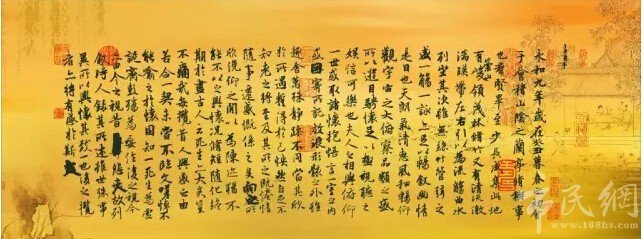 永和九年歲在癸丑暮春之初會
于會稽山陰之蘭亭脩稧事
也群賢畢至少長咸集此地
有崇山峻領茂林脩竹又有清流激
湍暎帶左右引以為流觴曲水
列坐其次雖無絲竹管弦之
盛一觴一詠亦足以暢敘幽情
是日也天朗氣清惠風和暢仰
觀宇宙之大俯察品類之盛
所以遊目騁懷足以極視聽之
娛信可樂也夫人之相與俯仰
一世或取諸懷抱悟言一室之內
或因寄所託放浪形骸之外雖
趣舍萬殊靜躁不同當其欣
於所遇蹔得於己怏然自足不
知老之將至及其所之既惓情
隨事遷感慨係之矣向之所
欣俛仰之間以為陳迹猶不
能不以之興懷況脩短隨化終
期於盡古人云死生亦大矣豈
不痛哉每攬昔人興感之由
若合一契未嘗不臨文嗟悼不
能喻之於懷固知一死生為虛
誕齊彭殤為妄作後之視今
亦由今之視昔悲夫故列
敘時人錄其所述雖世殊事
異所以興懷其致一也後之攬
者亦將有感於斯文
市民網
www.168hs.com